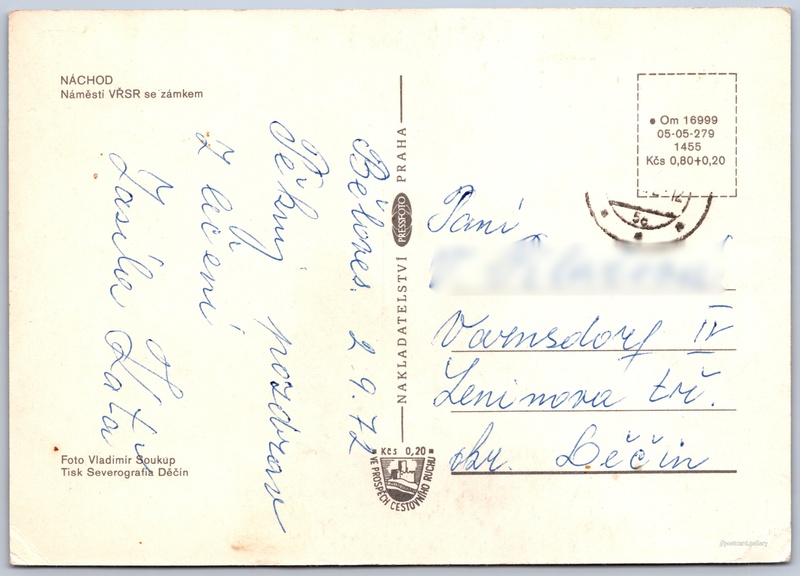 NÁCHOD
Náměstí VŘSR se zámkem
Běloves. 2.9.72
Pěkný pozdrav
z léčení
zasílá
Foto Vladimír Soukup
Tisk Severografia Děčín
NAKLADATELSTVÍ PRESSFOTO PRAHA
Kčs 0,20
VE PROSPĚCH CESTOVNÍHO RUCHU
Om 16999
05-05-279
1455
Kčs 0,80+0,20
5c
Paní
Varnsdorf IV
Leninova tř.
okr. Děčín
@postcard.gallery